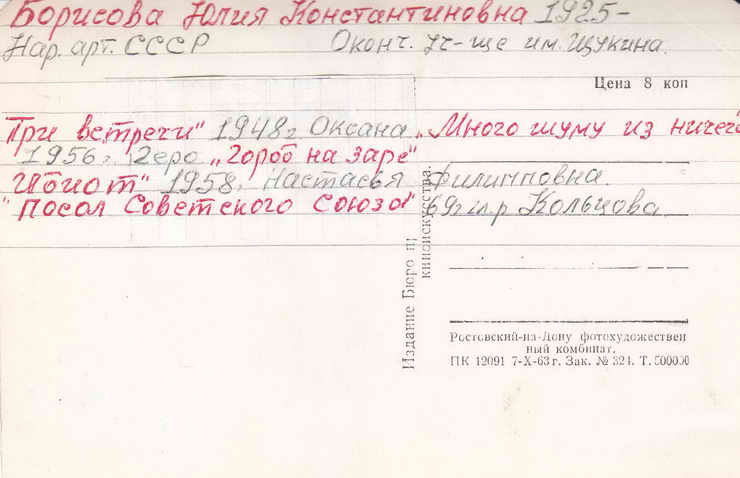 Борисова Юлия Константиновна 1925-
Нар. арт. СССР Оконч. уч-ще им. Щукина.
Цена 8 коп
Три встречи" 1948г Оксана „Много шуму из ничег
1956г. Геро „Город на заре"
Идиот" 1958. Настасья Филипповна.
"Посол Советского Союза" 69г гл.р Кольцова
Издание Бюро п
киноискусства.
Ростовский-на-Дону фотохудожествен
ный комбинат.
ПК 12091 7-X-63 г. Зак. № 324. Т. 500000